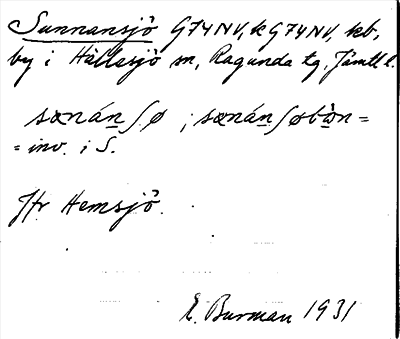 Sunnansjö G74NV, k G74NV, kb,
by i Hällesjö sn, Ragunda tg, Jämtl l.
sænán̲ʃø ; sænán̲ʃøbòn =
= inv. i S.
Jfr Hemsjö.
E. Burman 1931